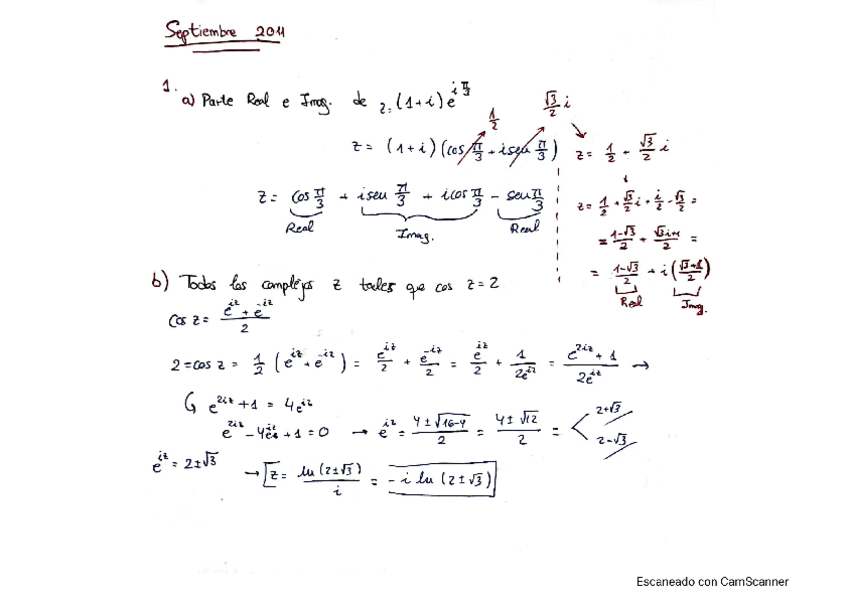 Septiembre 2011
1.
a) Parte Real e Imag. de z=(1+i)e^{iπ/3}
1/2 √3/2 i
z= (1+i)(cos π/3 + isen π/3)
z= 1/2 + √3/2 i
z= cos π/3 + isen π/3 + icos π/3 - sen π/3
Real Imag. Real
z= 1/2 + √3/2 i + i/2 - √3/2 =
= 1-√3/2 + √3i+i/2 =
= 1-√3/2 + i(√3+1/2)
Real Imag.
b) Todos los complejos z tales que cos z=2
cos z = e^{iz} + e^{-iz}/2
2=cos z = 1/2 (e^{iz} + e^{-iz}) = e^{iz}/2 + e^{-iz}/2 = e^{iz}/2 + 1/2e^{iz} = e^{2iz} + 1/2e^{iz} →
↳ e^{2iz} + 1 = 4e^{iz}
e^{2iz} - 4e^{iz} + 1 = 0 → e^{iz} = 4±√16-4/2 = 4±√12/2 = < 2+√3
2-√3
e^{iz} = 2±√3 → z = ln(2±√3)/i = -i ln(2±√3)
Escaneado con CamScanner